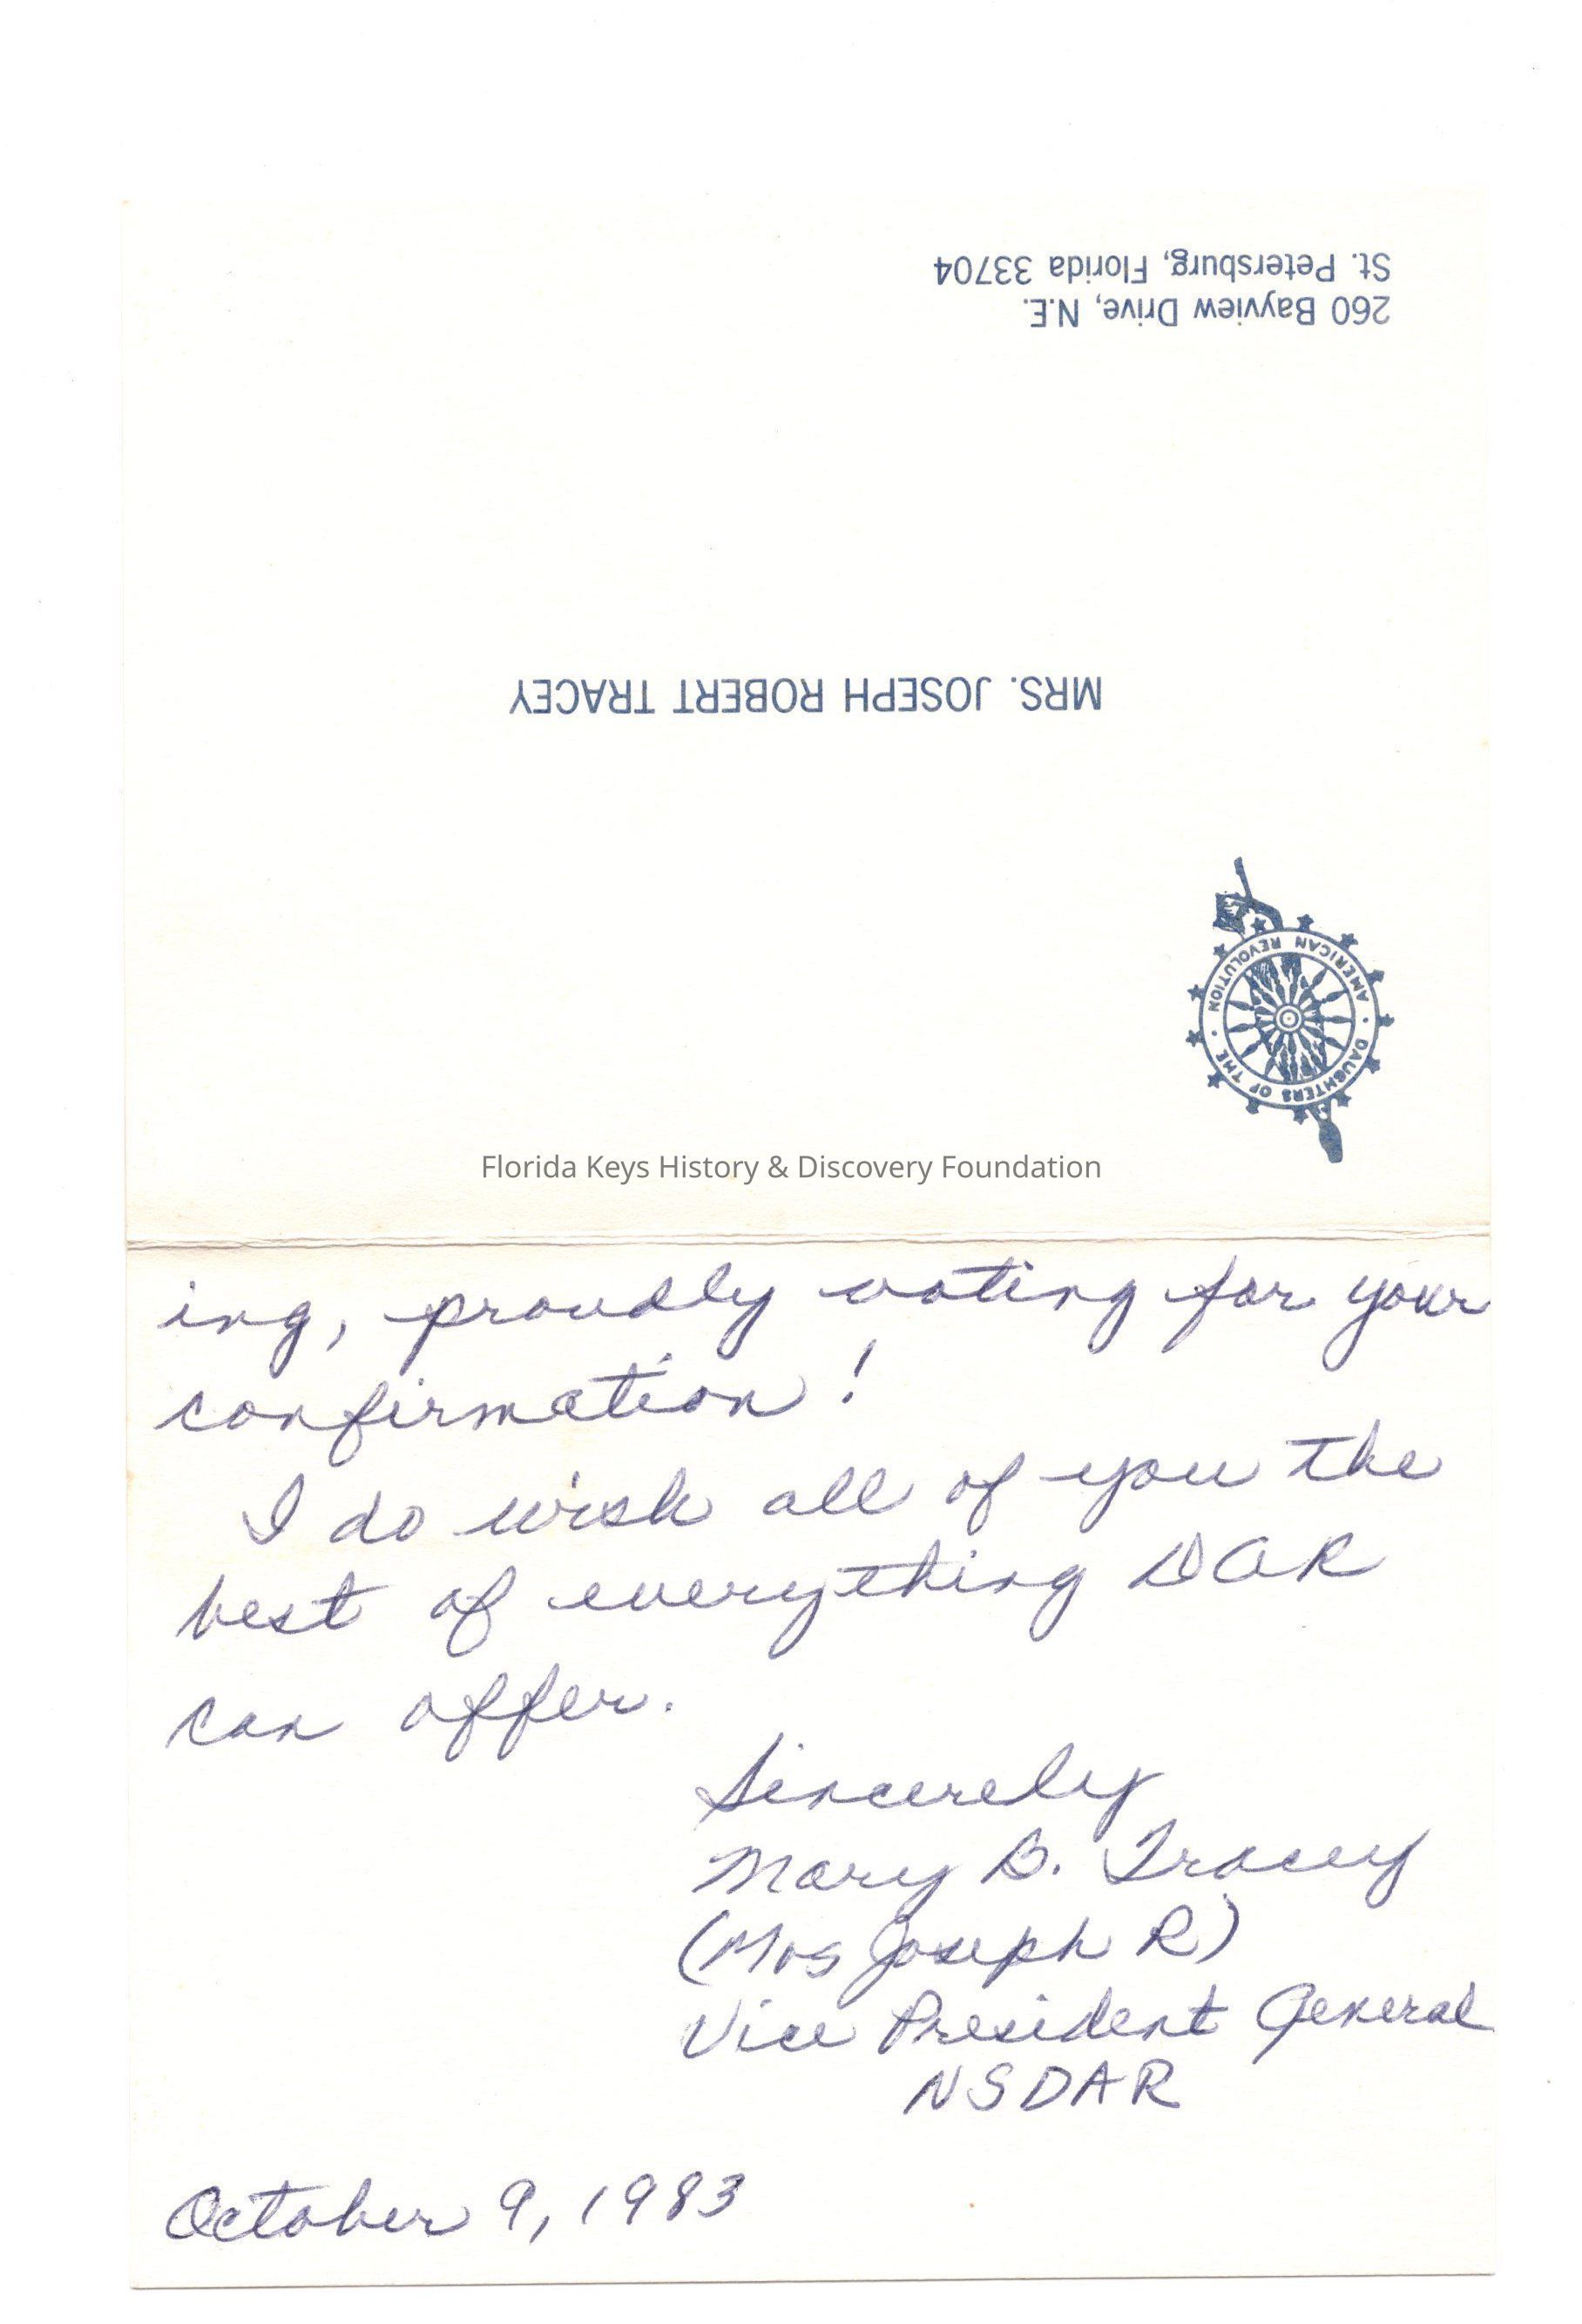 DAUGHTERS OF THE AMERICAN REVOLUTION
MRS. JOSEPH ROBERT TRACEY
260 Bayview Drive, N.E.
St. Petersburg, Florida 33704
Florida Keys History & Discovery Foundation
ing, proudly voting for your
confirmation!
I do wish all of you the
best of everything DAR
can offer.
Sincerely
Mary B. Tracey
(Mrs Joseph R)
Vice President General
NSDAR
October 9, 1983